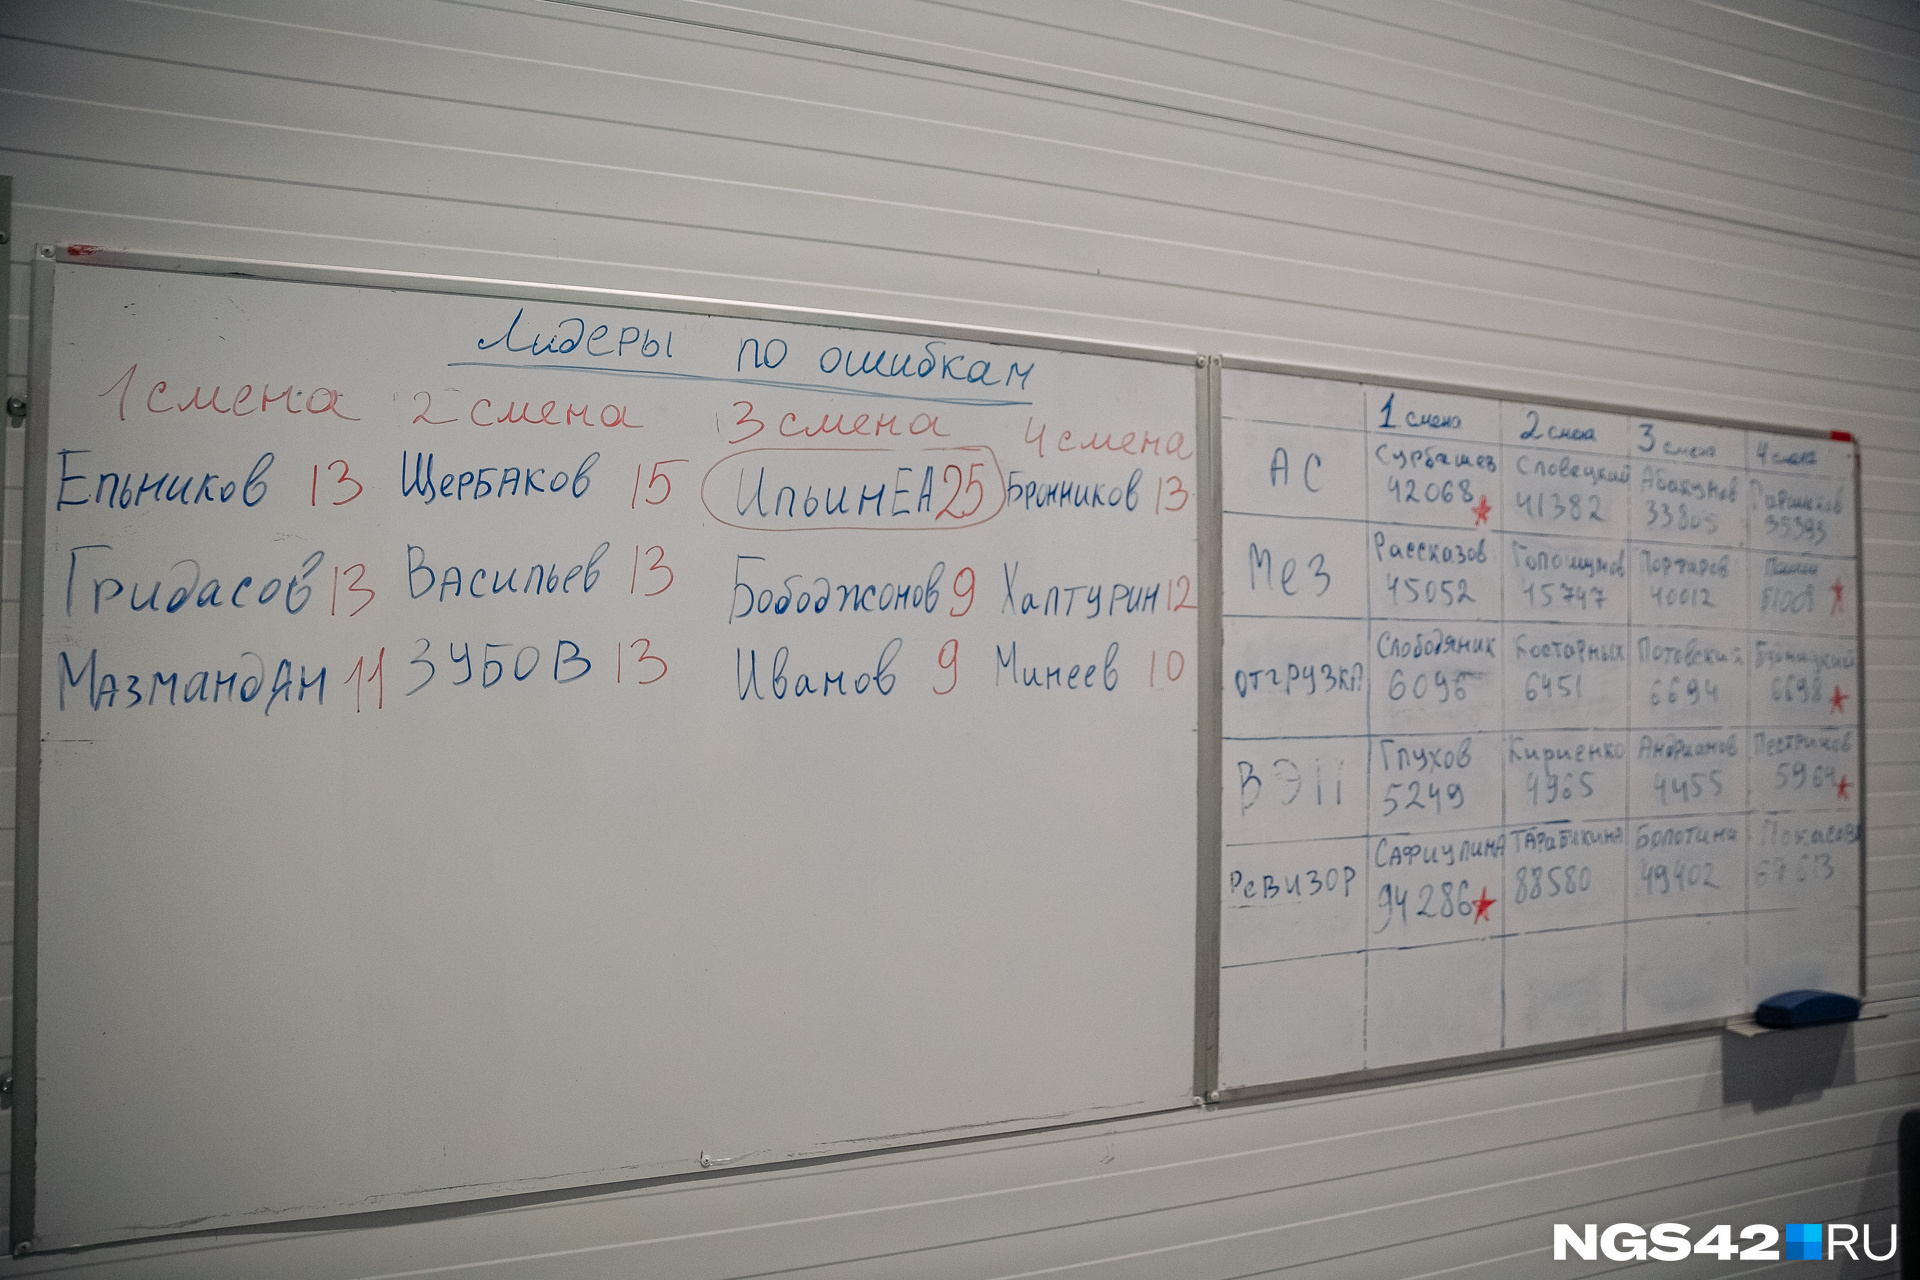 Лидеры по ошибкам
1 смена 2 смена 3 смена 4 смена
Ельников 13 Щербаков 15 Ильин ЕА 25 Бронников 13
Гридасов 13 Васильев 13 Бободжонов 9 Халтурин 12
Мазмандян 11 Зубов 13 Иванов 9 Минеев 10
1 смена 2 смена 3 смена 4 смена
АС Сурбашев Словецкий Абакумов
42068 41382 33805 35393
Мез Рассказов Портаров
45052 45747 40012
отгрузка Слободяник Костарных Потовский
6096 6451 6694 6698
ВЭП Глухов Кириенко Андрианов Пестриков
5249 4965 4455 5964
Ревизор Сафиулина Тарабыкина Болотина
94286 88580 49402 67613
NGS42 RU